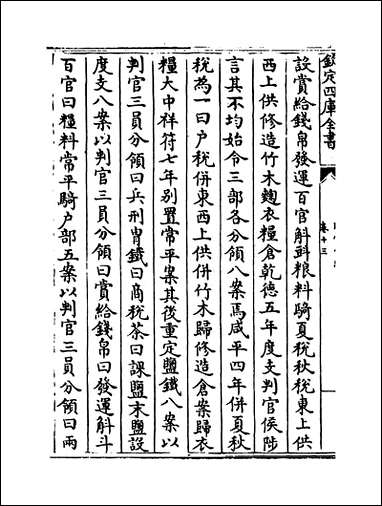 欽定四庫全書
卷十三
設賞給錢帛發運百官斛㪷粮料騎夏稅秋稅東上供
西上供修造竹木麴衣糧倉乾德五年度支判官侯陟
言其不均始令三部各分領八案焉咸平四年併夏秋
稅為一曰户稅併東西上供併竹木歸修造倉案歸衣
糧大中祥符七年別置常平案其後重定鹽鐵八案以
判官三員分領曰兵刑胄鐵曰商稅茶曰課鹽末鹽設
度支八案以判官三員分領曰賞給錢帛曰發運斛斗
百官曰糧料常平騎户部五案以判官三員分領曰兩